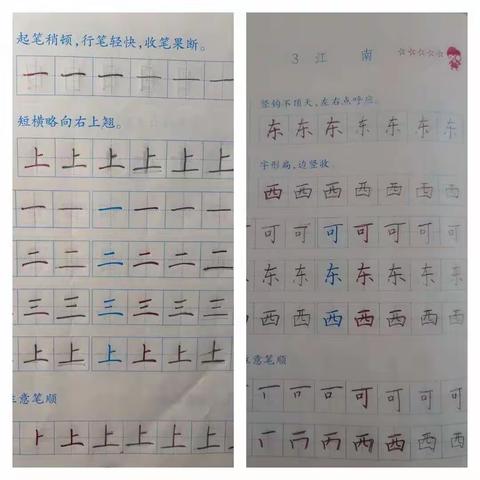 起笔稍顿,行笔轻快,收笔果断。
一 一 一 一 一 一
短横略向右上翘。
上 上 上 上 上 上
一 一 一 一 一 一
二 二 二 二 二 二
三 三 三 三 三 三
上 上 上 上 上 上
意笔顺
上 上 上 上 上
3 江 南
竖钩不顶天,左右点呼应。
东 东 东 东 东 东 东
字形扁,边竖收。
西 西 西 西 西 西 西
可 可 可 可 可 可 可
东 东 东 东 东 东 东
西 西 西 西 西 西 西
意笔顺
可 可 可 可
西 西 西